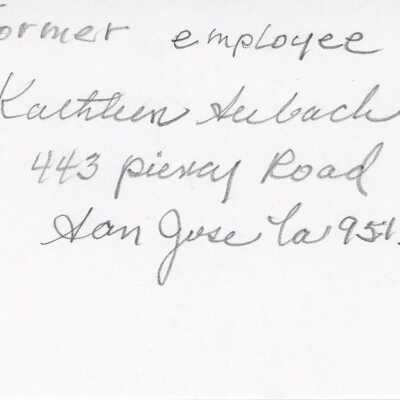 former employee
Kathleen Aubach
443 Piercy Road
San Jose Ca 951